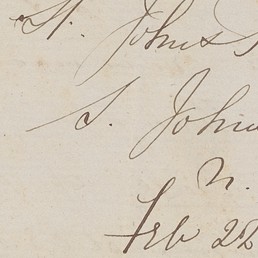 St. Johns
S. John
N.
Feb 22